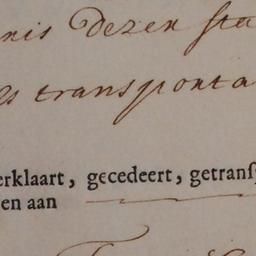 nis dezen sta
es transponta
erklaart, gecedeert, getranſp
en aan